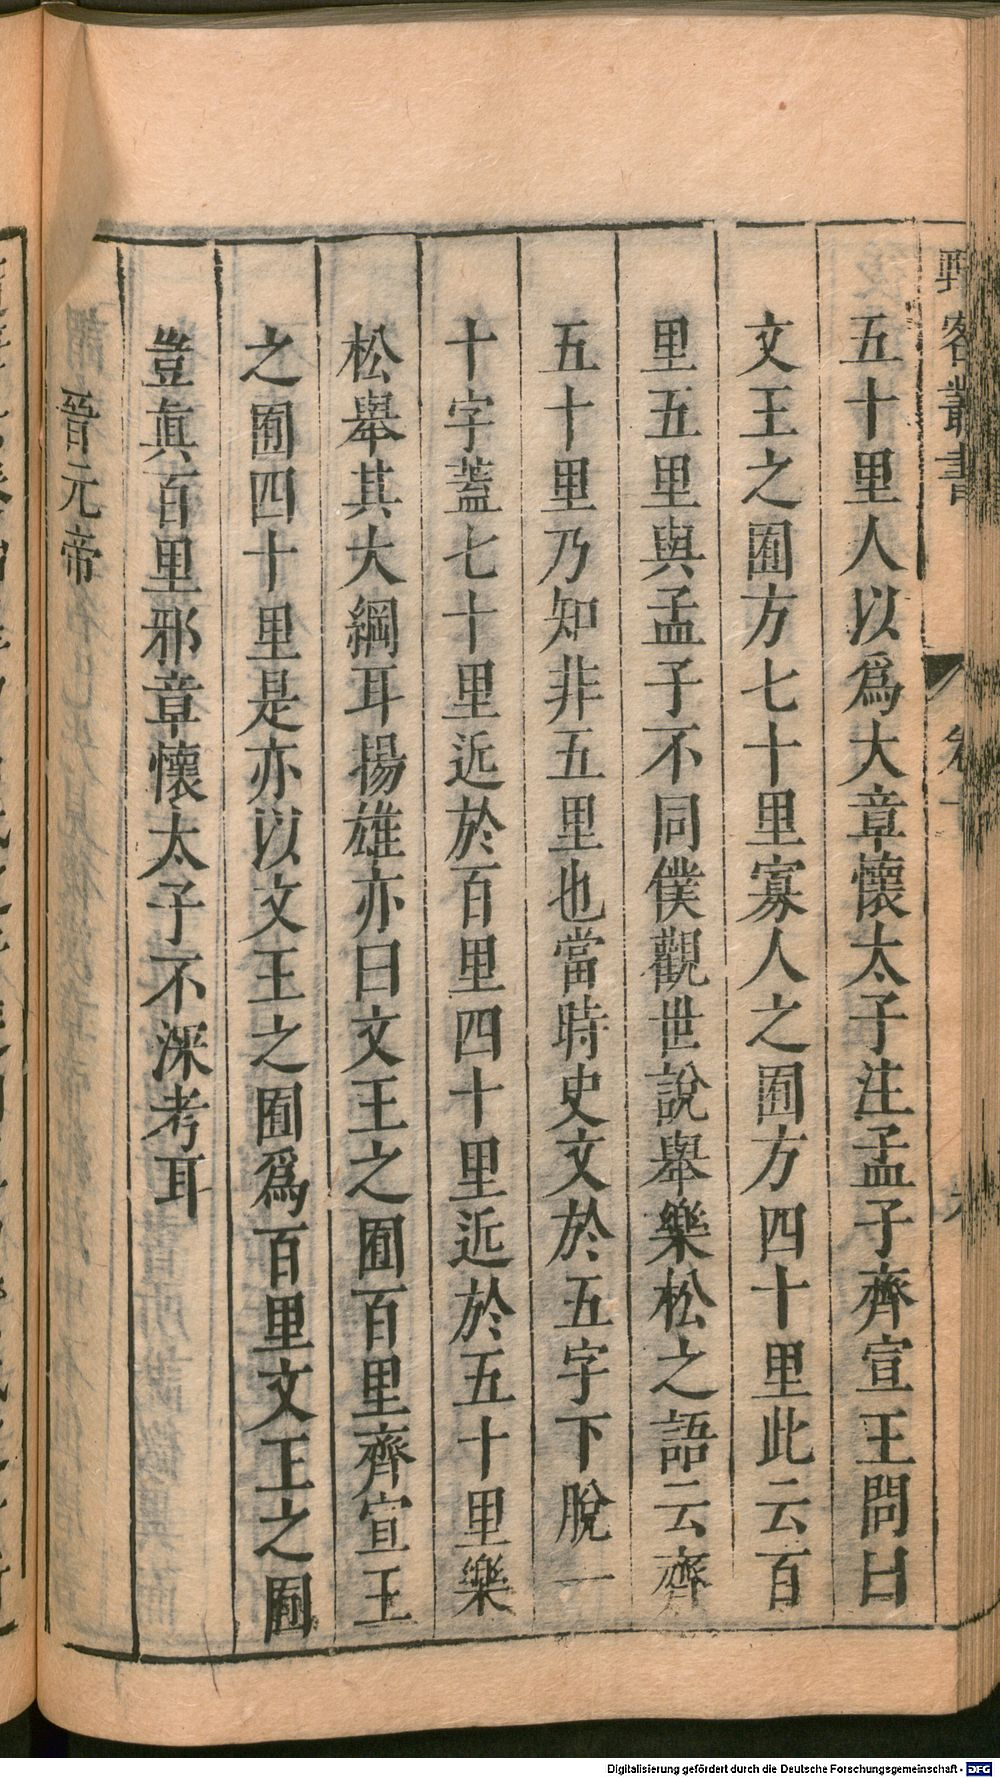 野客叢書
卷一
五十里人以爲大章懷太子注孟子齊宣王問曰
文王之囿方七十里寡人之囿方四十里此云百
里五里與孟子不同僕觀世說舉樂松之語云齊
五十里乃知非五里也當時史文於五字下脫一
十字蓋七十里近於百里四十里近於五十里樂
松舉其大綱耳揚雄亦曰文王之囿百里齊宣王
之囿四十里是亦以文王之囿爲百里文王之囿
豈眞百里邪章懷太子不深考耳
晉元帝
Digitalisierung gefördert durch die Deutsche Forschungsgemeinschaft - DFG